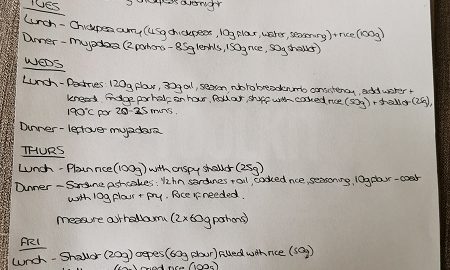 chickpeas overnight
TUES
Lunch - Chickpea curry (45g chickpeas, 10g flour, water, seasoning) + rice (100g)
Dinner - Mujadara (2 portions - 85g lentils, 150g rice, 50g shallot)
WEDS
Lunch - Pastries: 120g flour, 30g oil, season, rub to breadcrumb consistency, add water +
knead. Fridge for half an hour. Roll out, stuff with cooked rice (50g) + shallot (25g),
190°C for 20-25 mins.
Dinner - leftover mujadara
THURS
Lunch - Plain rice (100g) with crispy shallot (25g)
Dinner - Sardine fishcakes: 1/2 tin sardines + oil, cooked rice, seasoning, 10g flour - coat
with 10g flour + fry. Rice if needed.
Measure out halloumi (2 x 60g portions)
FRI
Lunch - Shallot (20g) crepes (60g flour) filled with rice (50g)
fried rice (100g)